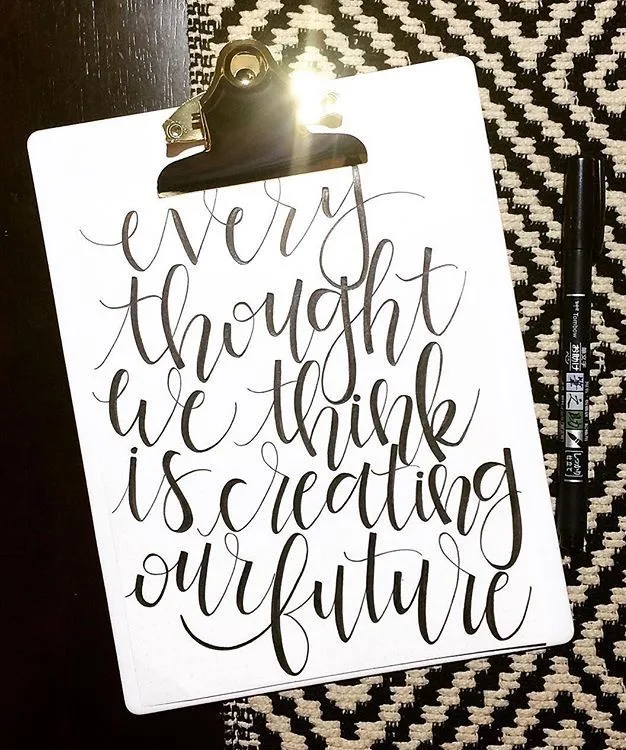 every
thought
we think
is creating
our future
Tombow
筆之助
しっかり仕立て